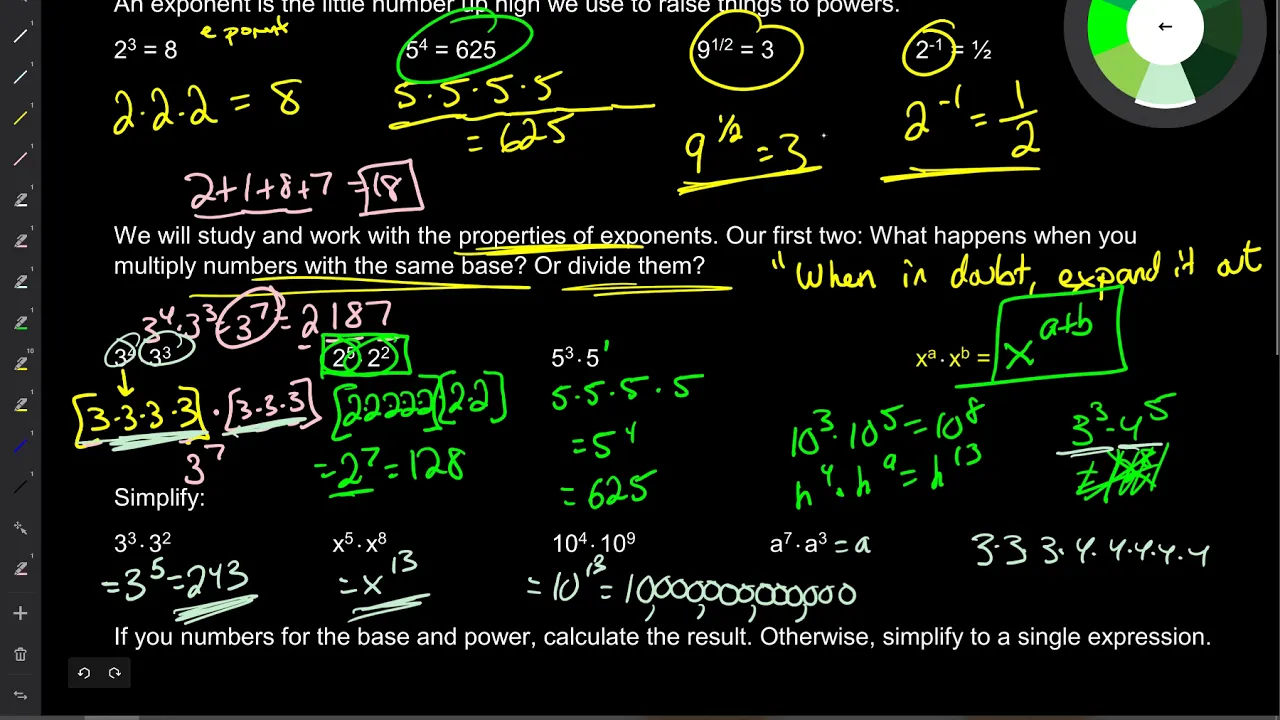 An exponent is the little number up high we use to raise things to powers.
exponent
2³ = 8 5⁴ = 625 9^{1/2} = 3 2^{-1} = ½
2·2·2 = 8 5·5·5·5 = 625 9^{1/2} = 3 2^{-1} = 1/2
2+1+8+7 = 18
We will study and work with the properties of exponents. Our first two: What happens when you
multiply numbers with the same base? Or divide them?
"When in doubt, expand it out
3⁴·3³ = 3⁷ = 2187
3⁴ 3³ 2⁵ 2² 5³ · 5¹ xᵃ · xᵇ = x^{a+b}
[3·3·3·3] · [3·3·3] [2·2·2·2·2][2·2] 5·5·5·5 10³·10⁵ = 10⁸ 3³·4⁵
3⁷ = 2⁷ = 128 = 5⁴ h⁴·h⁹ = h¹³ =
= 625
Simplify:
3³ · 3² x⁵ · x⁸ 10⁴ · 10⁹ a⁷ · a³ = a 3·3 3·4·4·4·4·4
= 3⁵ = 243 = x¹³ = 10¹³ = 10,000,000,000,000
If you numbers for the base and power, calculate the result. Otherwise, simplify to a single expression.